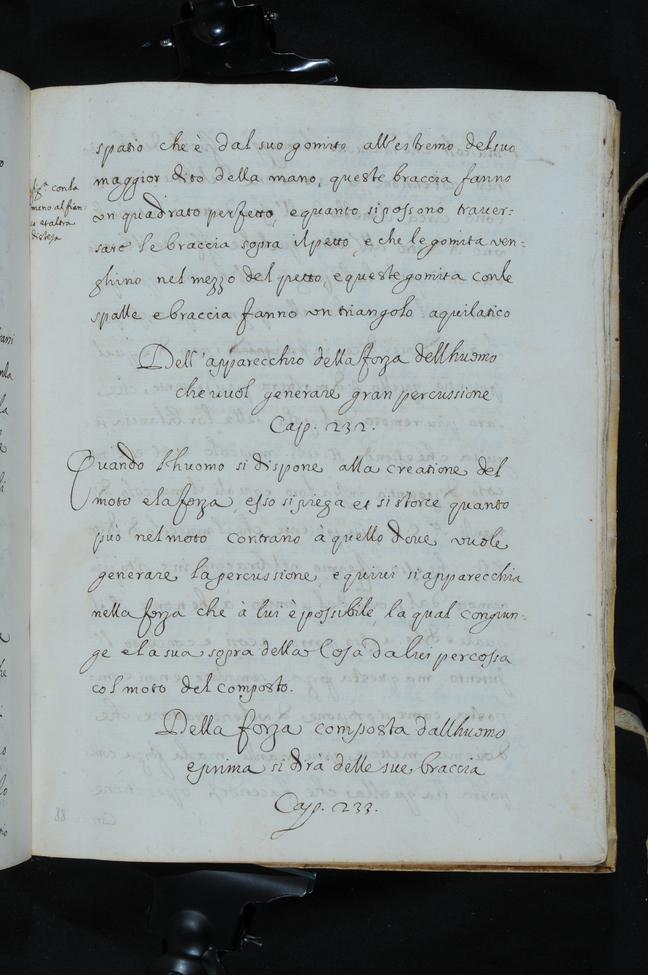 spatio che è dal suo gomito all'estremo del suo
maggior dito della mano, queste braccia fanno
un quadrato perfetto, e quanto si possono traver:
sare le braccia sopra il petto, e che le gomita ven:
ghino nel mezzo del petto, e queste gomita con le
spalle e braccia fanno un triangolo aquilatico
con la
mano al fian:
et altra
distesa
Dell'apparecchio della forza dell'huomo
che vuol generare gran percussione
Cap. 232.
Quando l'huomo si dispone alla creatione del
moto e la forza, esso si piega et si storce quanto
può nel moto contrario a quello dove vuole
generare la percussione, e quivi si apparecchia
nella forza che à lui è possibile, la qual congiun:
ge e la sua sopra della cosa da lui percossa
col moto del composto.
Della forza composta dall'huomo
e prima si dirà delle sue braccia
Cap. 233.
88